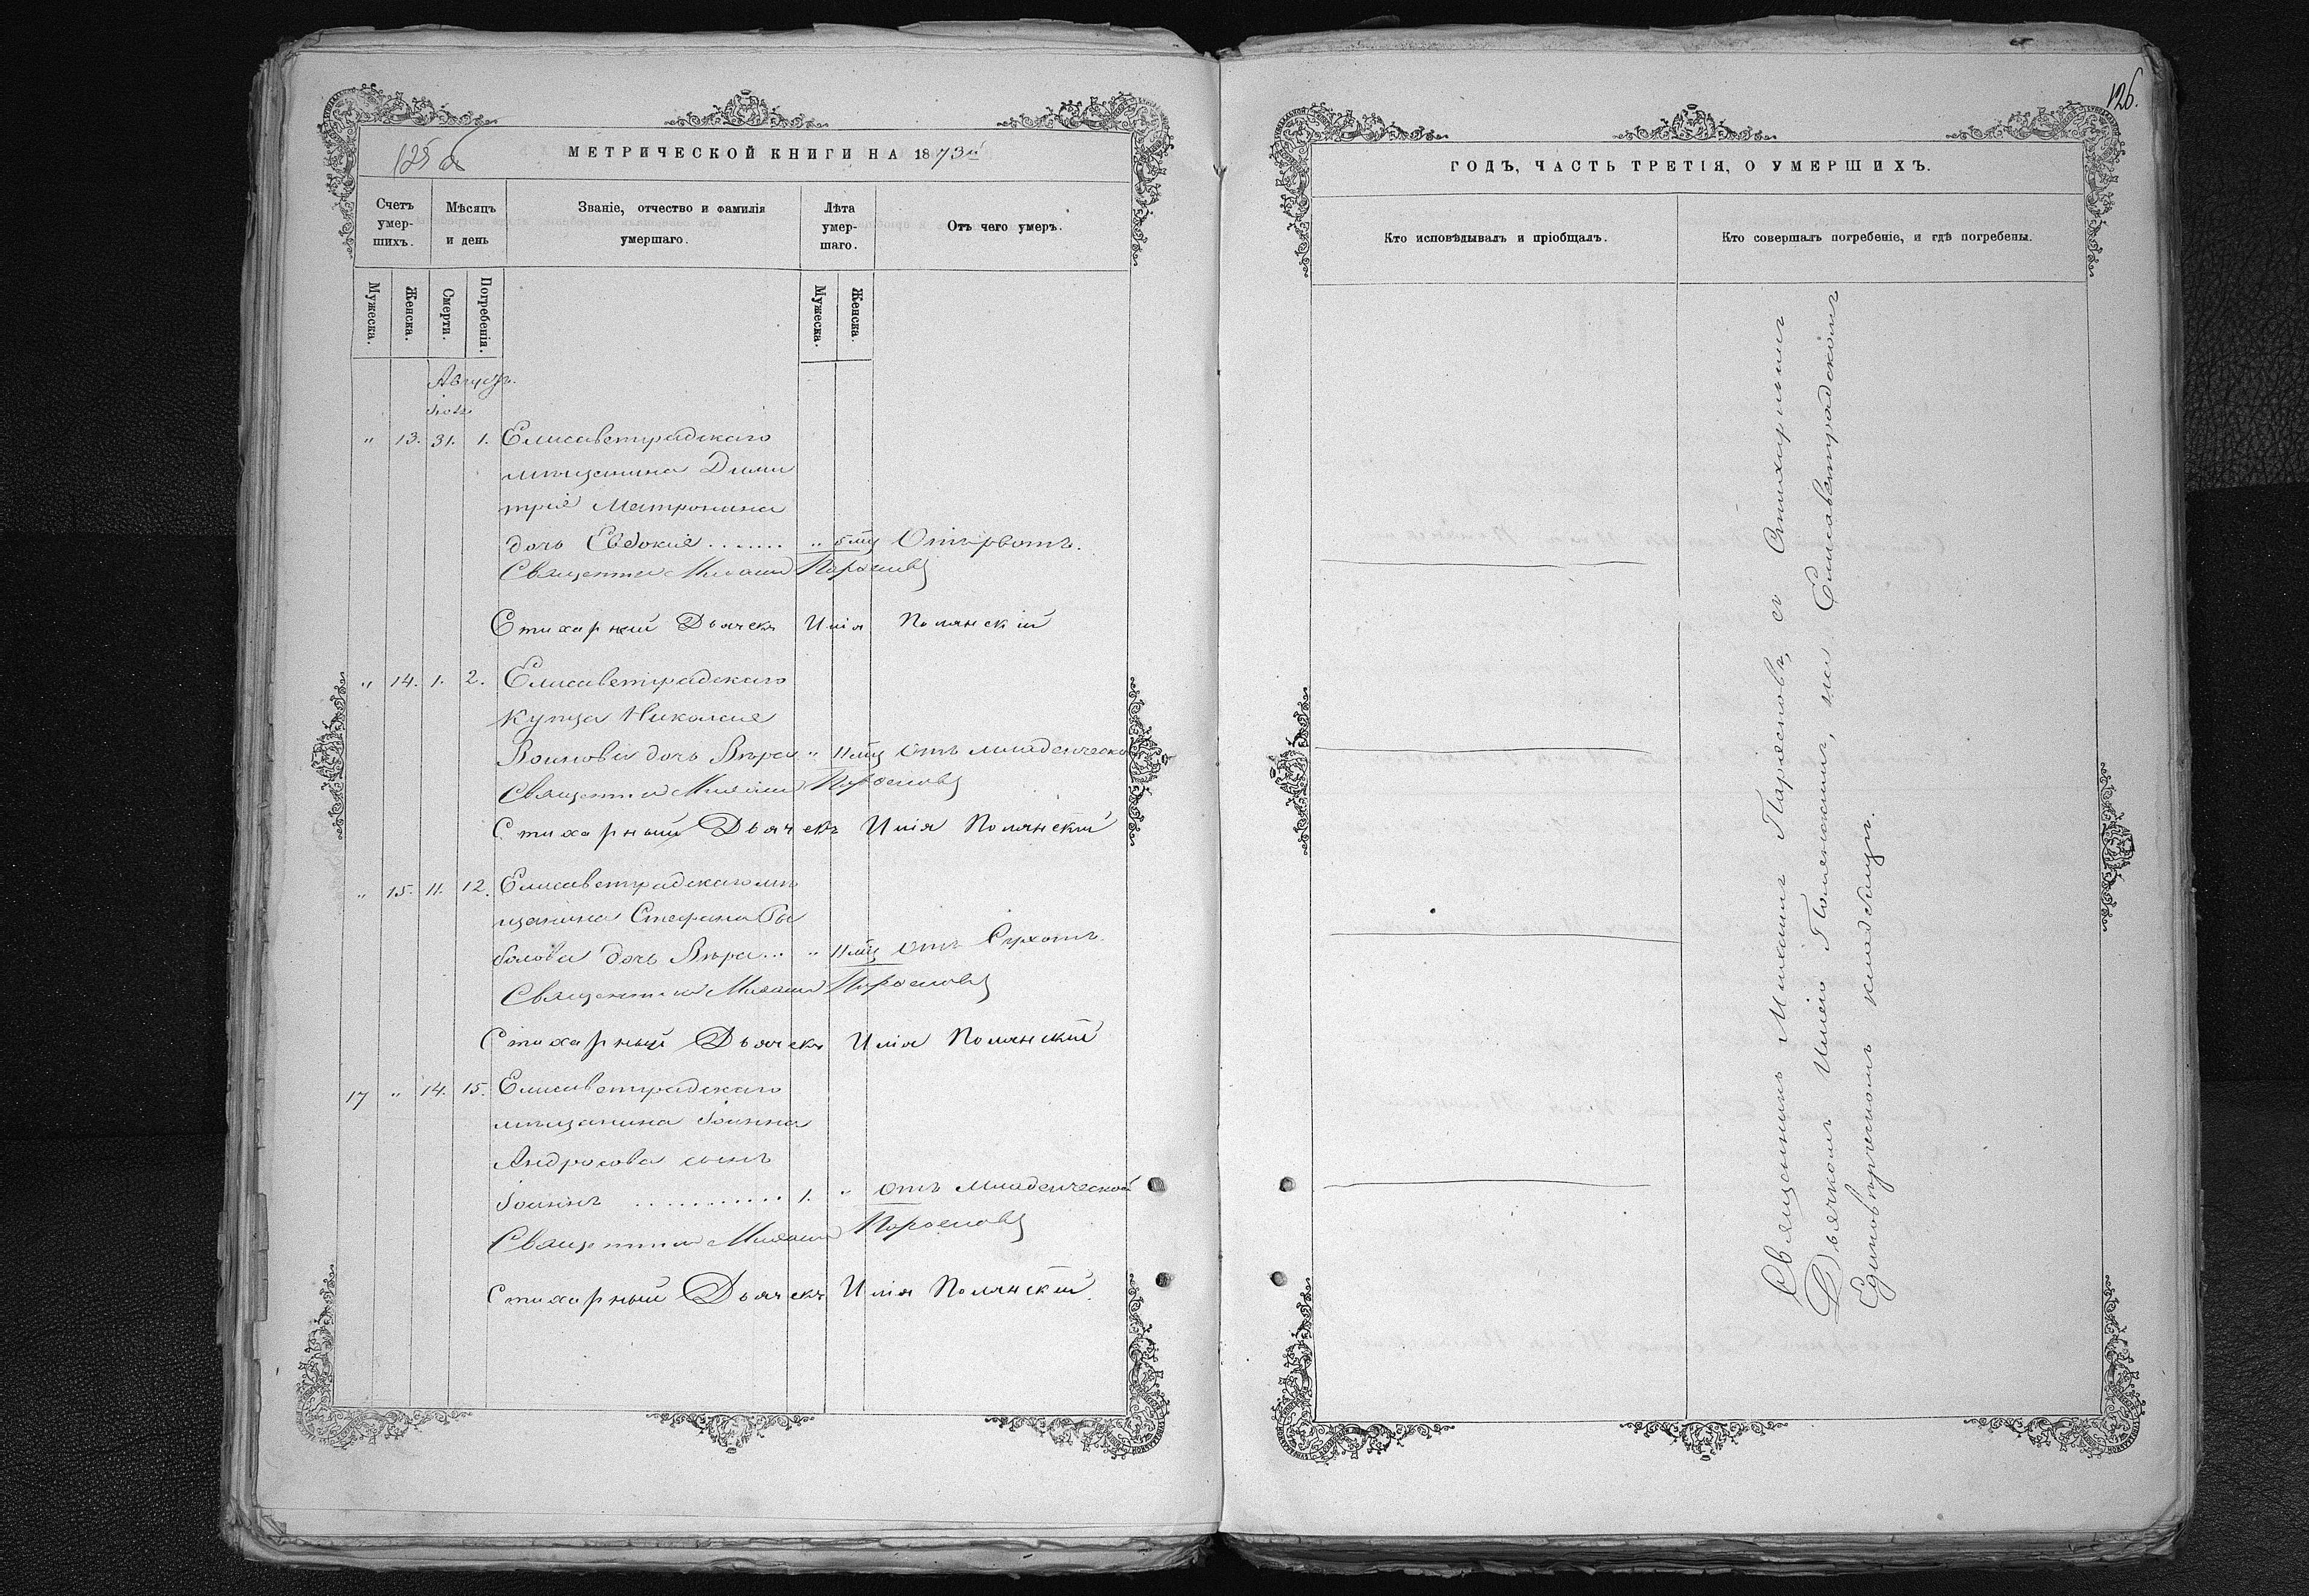 125 об
МЕТРИЧЕСКОЙ КНИГИ НА 1873й
Счетъ умершихъ.
Мѣсяцъ и день
Званіе, отчество и фамилія умершаго.
Лѣта умершаго.
Отъ чего умеръ.
Мужеска.
Женска.
Смерти.
Погребенія.
Мужеска.
Женска.
Августъ.
Іюля
" 13. 31. 1. Елисаветградскаго
мѣщанина Дими
трія Матронина
дочь Евдокія ....... " 5 мц Отъ рвотъ.
Священникъ Михаилъ
Стихарный Дьячекъ Илія Полянскій
" 14. 1. 2. Елисаветградскаго
купца Николая
Воинова дочь Вѣра " 11 мц отъ младенческой
Священникъ Михаилъ
Стихарный Дьячекъ Илія Полянскій
" 15. 11. 12. Елисаветградскаго мѣ
щанина Стефана Ры
балова дочь Вѣра... " 11 мц отъ Сухотъ.
Священникъ Михаилъ
Стихарный Дьячекъ Илія Полянскій
17 " 14. 15. Елисаветградскаго
мѣщанина Іоанна
Андросова сынъ
Іоаннъ ........... 1. " отъ младенческой
Священникъ Михаилъ
Стихарный Дьячекъ Илія Полянскій.
126.
ГОДЪ, ЧАСТЬ ТРЕТІЯ, О УМЕРШИХЪ.
Кто исповѣдывалъ и пріобщалъ.
Кто совершалъ погребеніе, и гдѣ погребены.
Священникъ Михаилъ с Стихарнымъ
Дьячкомъ Иліею Полянскимъ, на Елисаветградскомъ
Единовѣрческомъ кладбищѣ.